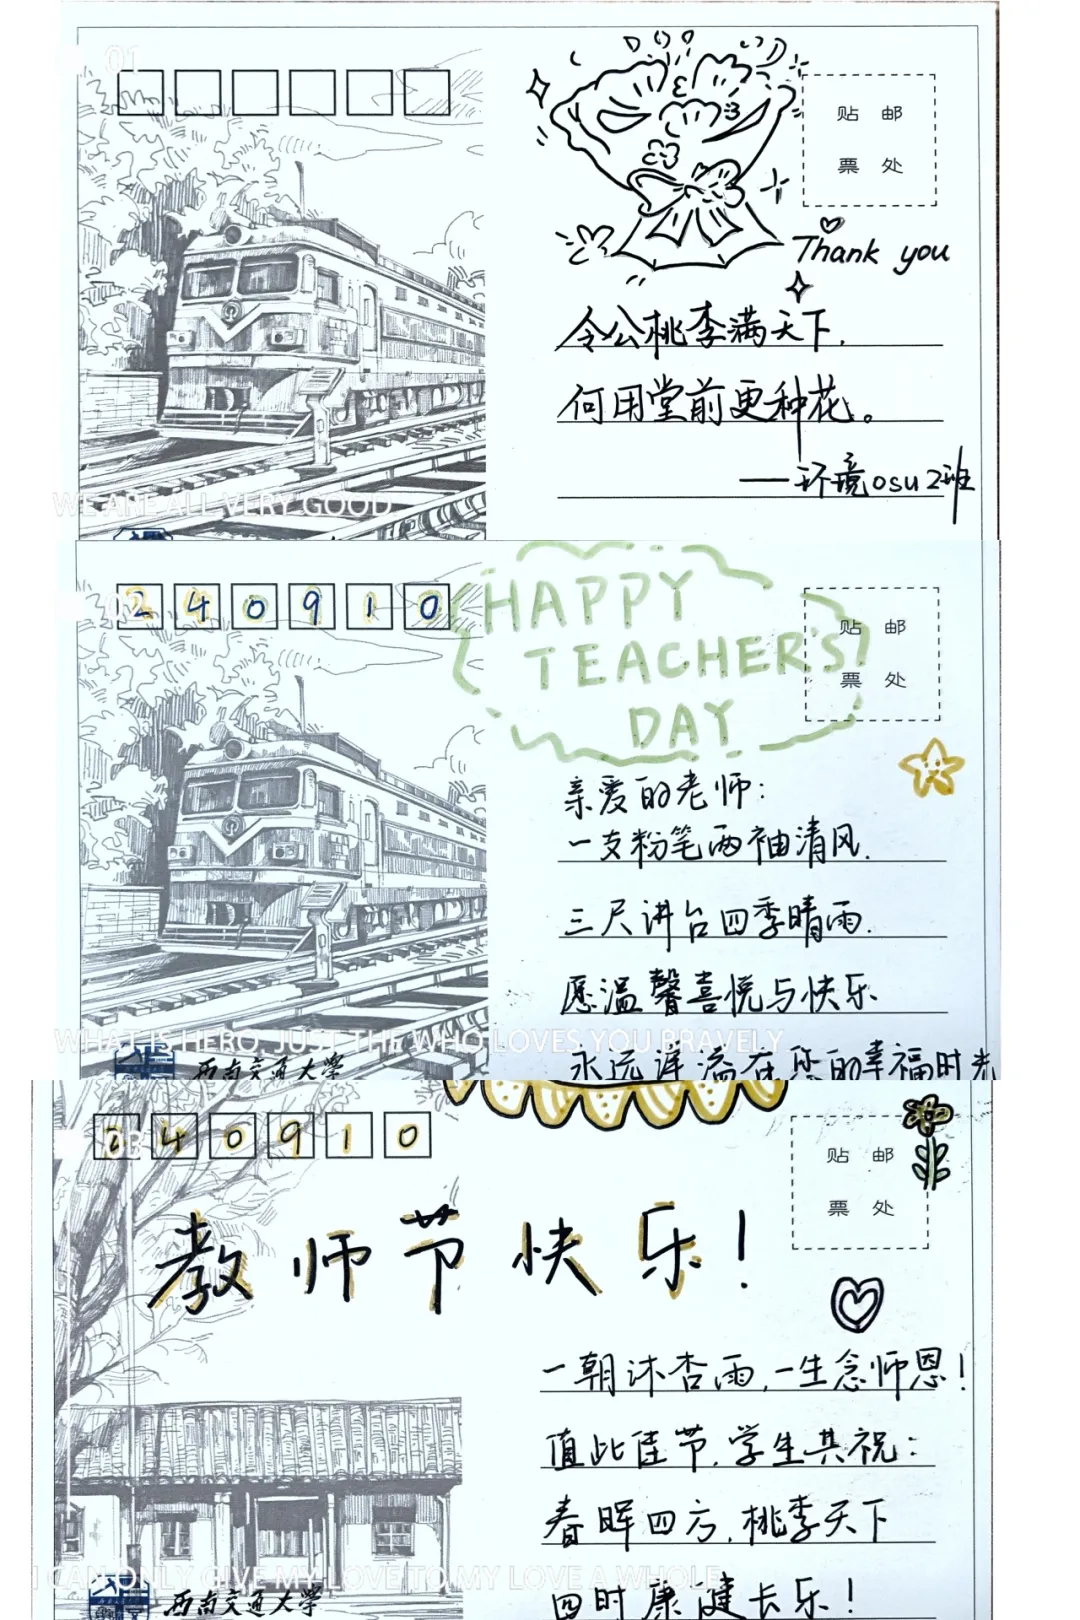 01
贴 邮
票 处
Thank you
令公桃李满天下,
何用堂前更种花。
——环境osu2班
WE ARE ALL VERY GOOD
240910
HAPPY
TEACHER'S
DAY
贴 邮
票 处
亲爱的老师:
一支粉笔两袖清风,
三尺讲台四季晴雨.
愿温馨喜悦与快乐
永远洋溢在您的幸福时光
WHAT IS HERO, JUST THE WHO LOVES YOU BRAVELY
西南交通大學
240910
贴 邮
票 处
教师节快乐!
一朝沐杏雨,一生念师恩!
值此佳节,学生共祝:
春晖四方,桃李天下
四时康健长乐!
I CAN ONLY GIVE MY LOVE TO MY LOVE A WHOLE
西南交通大學